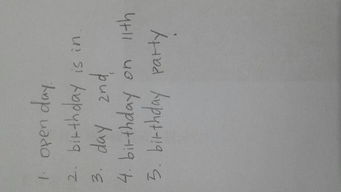 1. open day.
2. birthday is in
3. day 2nd
4. birthday on 11th
5. birthday party.